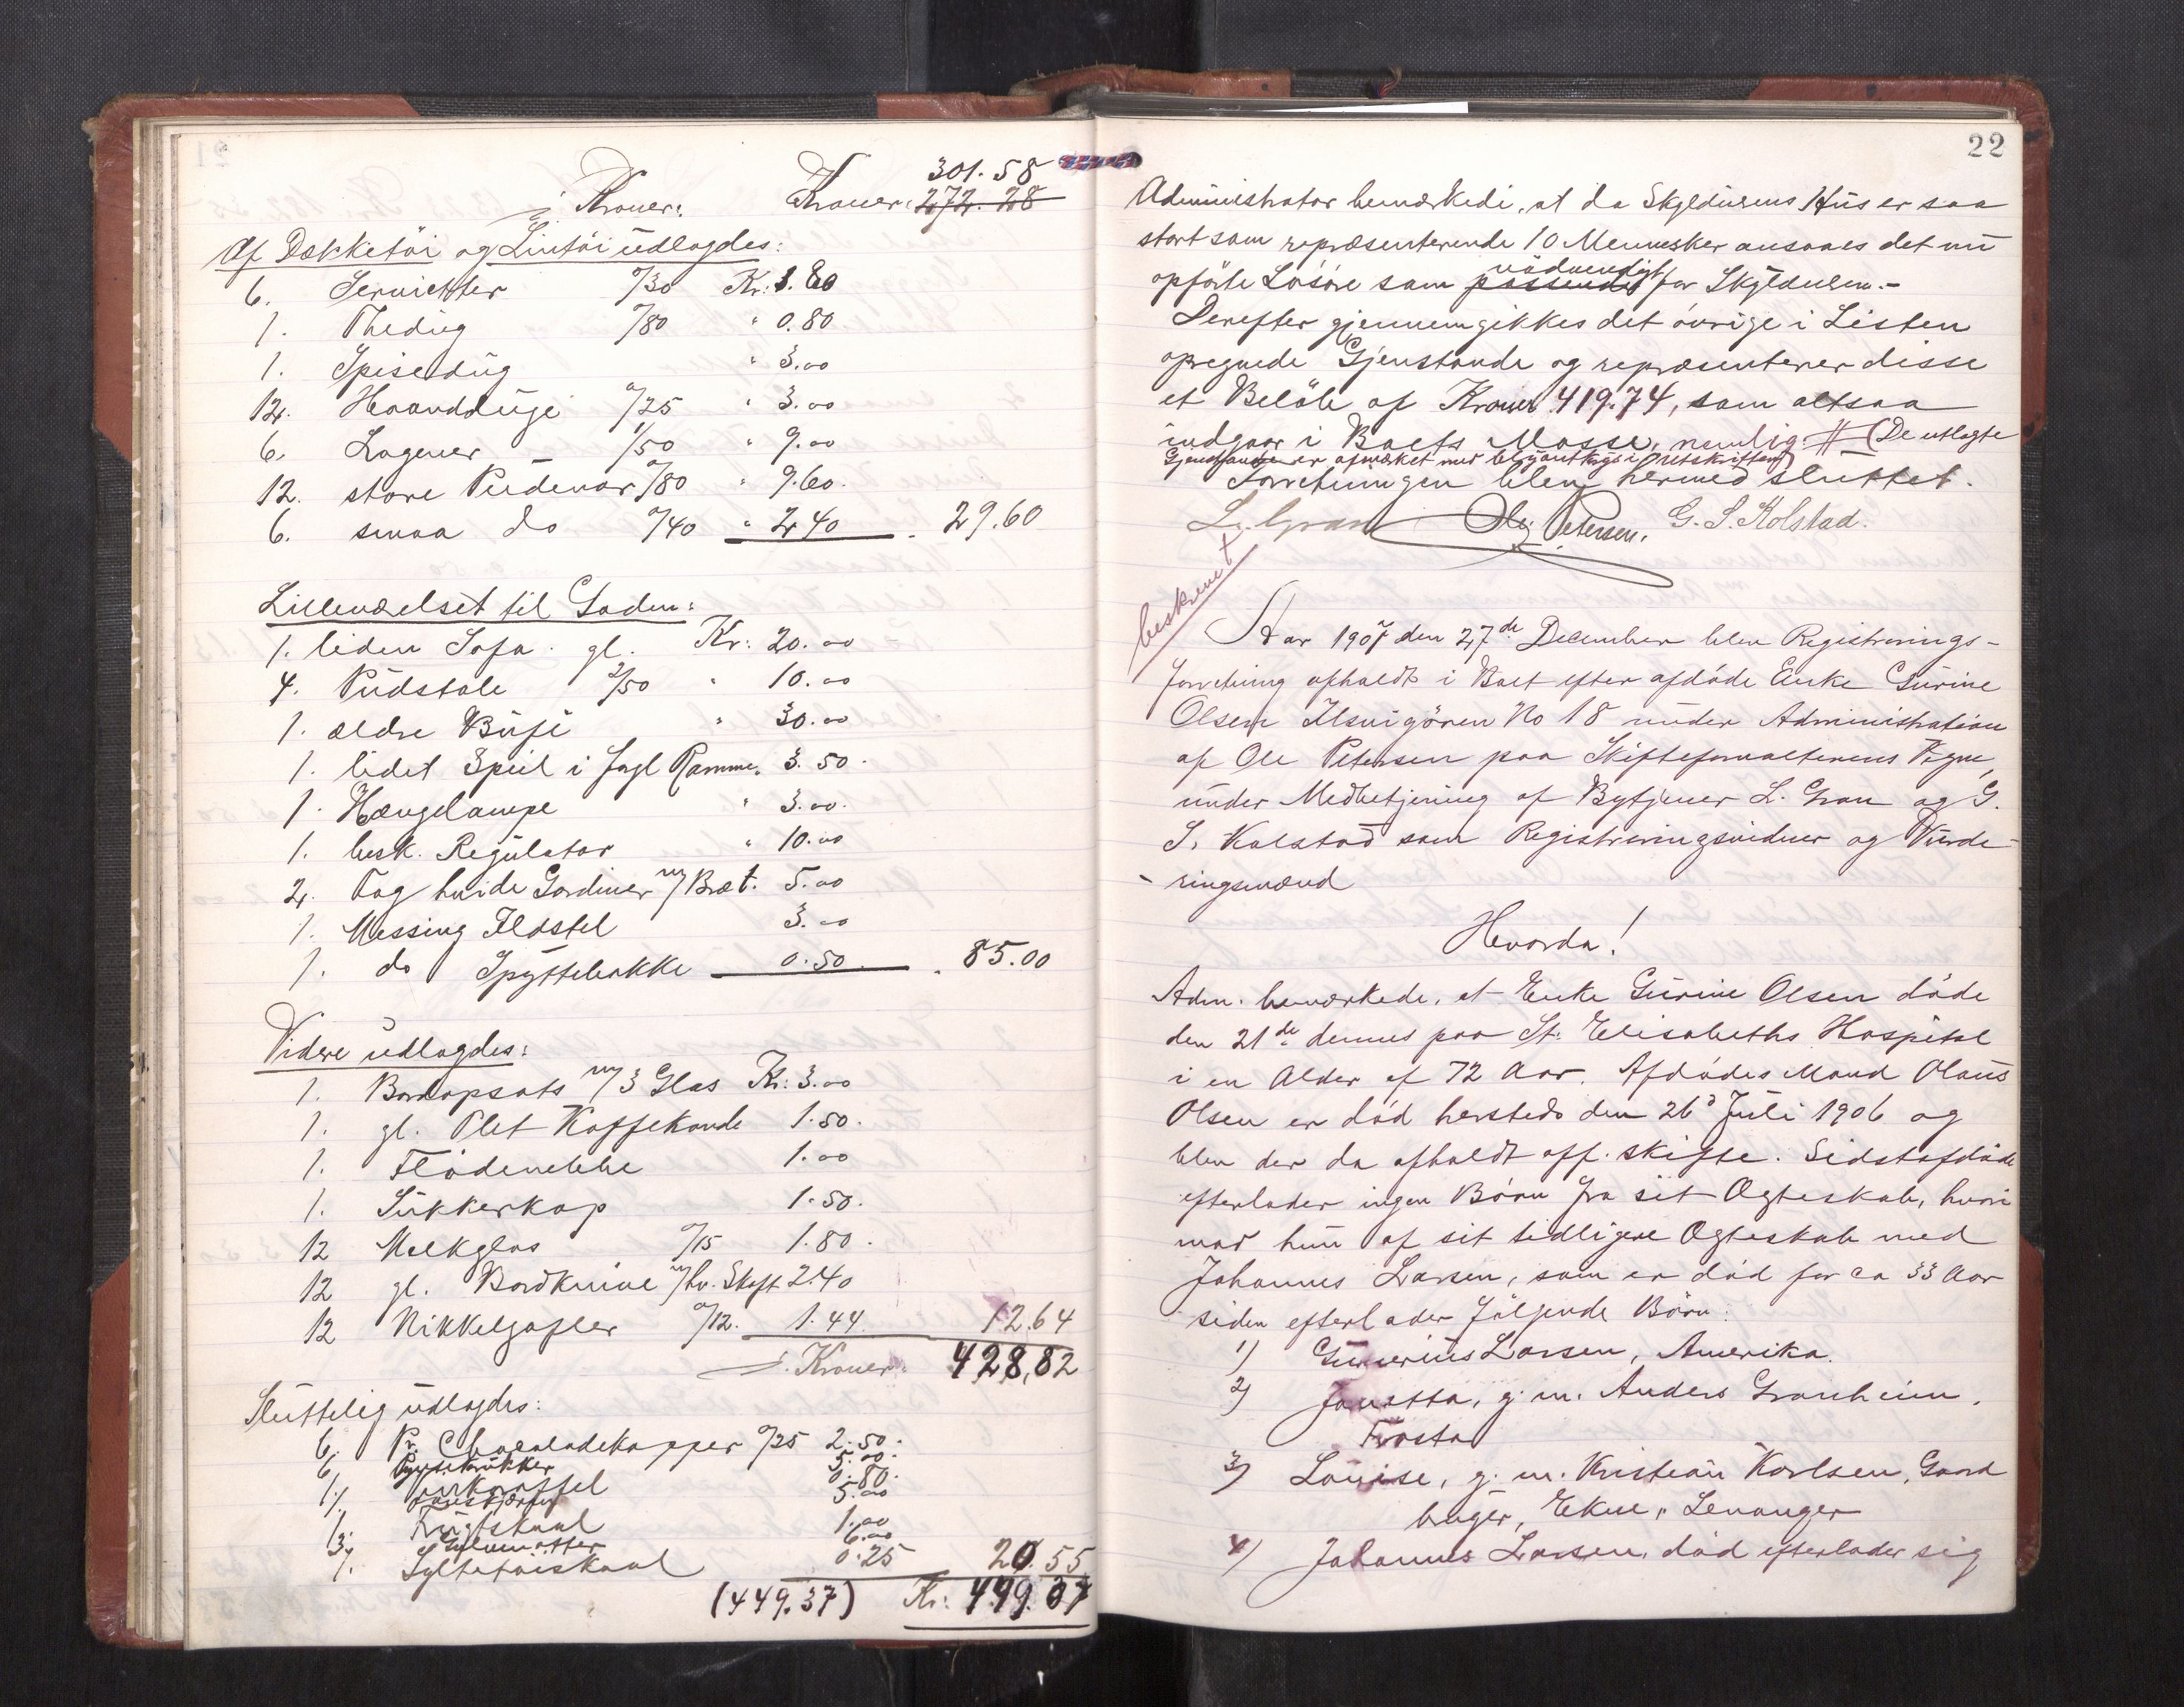 301.58
i Kroner: Kroner: 272.28
Af Dækketöi og Lintöi udlagdes:
6. Servietter a/30 Kr: 1.80
1. Thedug a/80 " 0.80
1. Spisedug " 3.00
12. Haandduge a/25 " 3.00
6. Lagener 1/50 " 9.00
12. store Pudevar a/80 " 9.60.
6. smaa do a/40 " 2.40 29.60
Lilleværelset til Gaden:
1. liden Sofa. gl. Kr: 20.00
4. Pudstole 2/50 " 10.00
1. ældre Buffé " 30.00
1. lidet Speil i forgl Ramme. 3.50.
1. Hængelampe " 3.00.
1. besk. Regulator " 10.00
2. Fag hvide Gardiner m/Bræt. 5.00
1. Messing Ildstel 3.00
1. do Spyttebakke 0.50. 85.00
Videre udlagdes:
1. Bordopsats m/3 Glas Kr: 3.00
1. gl. Plet Kaffekande 1.50.
1. Flödemugge 1.00
1. Sukkerkop 1.50.
12 Melkglas a/15 1.80.
12 gl. Bordknive m/hv. Skaft 2.40
12 Nikkelgafler a/12. 1.44 12.64
Kroner: 428,82
Sluttelig udlagdes:
6. Pr. Chocoladekopper a/25 2.50.
6. 5.00.
1. 0.80.
1. 5.00
1. Frugtskaal 1.00
3. Gulvmatter 6.00
1. Syltetöiskaal 0.25 20.55
(449.37) Kr: 449.37
22
Administrator bemærkede, at da Skyldnerens Hus er saa
stort som repræsenterende 10 Mennesker ansaaes det nu
nödvendigt
opförte Lösöre som passende for Skyldneren.-
Derefter gjennemgikkes det övrige i Listen
opregnede Gjenstande og repræsenterer disse
et Belöb af Kroner 419.74, som altsaa
indgaar i Boets Masse, nemlig: # (De utlagte
Gjenstande er afmerket med blyantkryds i Utskriften)
Forretningen blev hermed sluttet.
L. Gran Ole Petersen. G. S. Kolstad.
beskrevet +
Aar 1907 den 27de December blev Registrerings-
forretning afholdt i Boet efter afdöde Enke Gurine
Olsen Ilsvigören No 18 under Administration
af Ole Petersen paa Skifteforvalterens Vegne,
under Medbetjening af Bytjener L. Gran og G.
S. Kolstad som Registreringsvidner og Vurde-
-ringsmænd
Hvorda!
Adm. bemærkede, at Enke Gurine Olsen döde
den 21de dennes paa St. Elisabeths Hospital
i en Alder af 72 Aar. Afdödes Mand Olaus
Olsen er död hersteds den 26de Juli 1906 og
blev der da afholdt off. skifte. Sidstafdöde
efterlader ingen Börn fra sit Ægteskab, hvori
mod hun af sit tidligere Ægteskab med
Johannes Larsen, som er död for ca 33 Aar
siden efterlader fölgende Börn:
1) Gunerius Larsen, Amerika.
2) Janetta, g. m. Anders Granheim,
Frosta
3) Louise, g. m. Kristian Karlsen, Gaard
bruger, Ekne, Levanger
4) Johannes Larsen, död efterlader sig